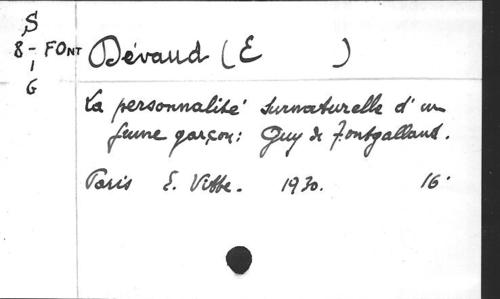 S
8 - FONT
1
G
Dévaud (E )
La personnalité surnaturelle d'un
jeune garçon: Guy de Fontgalland.
Paris E. Vitte. 1930. 16°